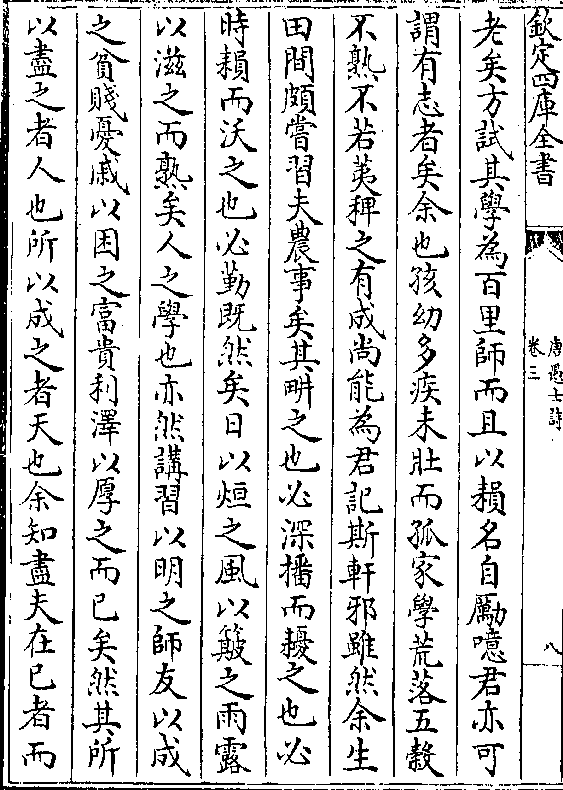 欽定四庫全書
唐愚士詩
卷三
八
老矣方試其學為百里師而且以耨名自勵噫君亦可
謂有志者矣余也孩幼多疾未壯而孤家學荒落五穀
不熟不若荑稗之有成尚能為君記斯軒邪雖然余生
田間頗嘗習夫農事矣其畊之也必深播而耰之也必
時耨而沃之也必勤既然矣日以烜之風以簸之雨露
以滋之而熟矣人之學也亦然講習以明之師友以成
之貧賤憂戚以困之富貴利澤以厚之而已矣然其所
以盡之者人也所以成之者天也余知盡夫在已者而